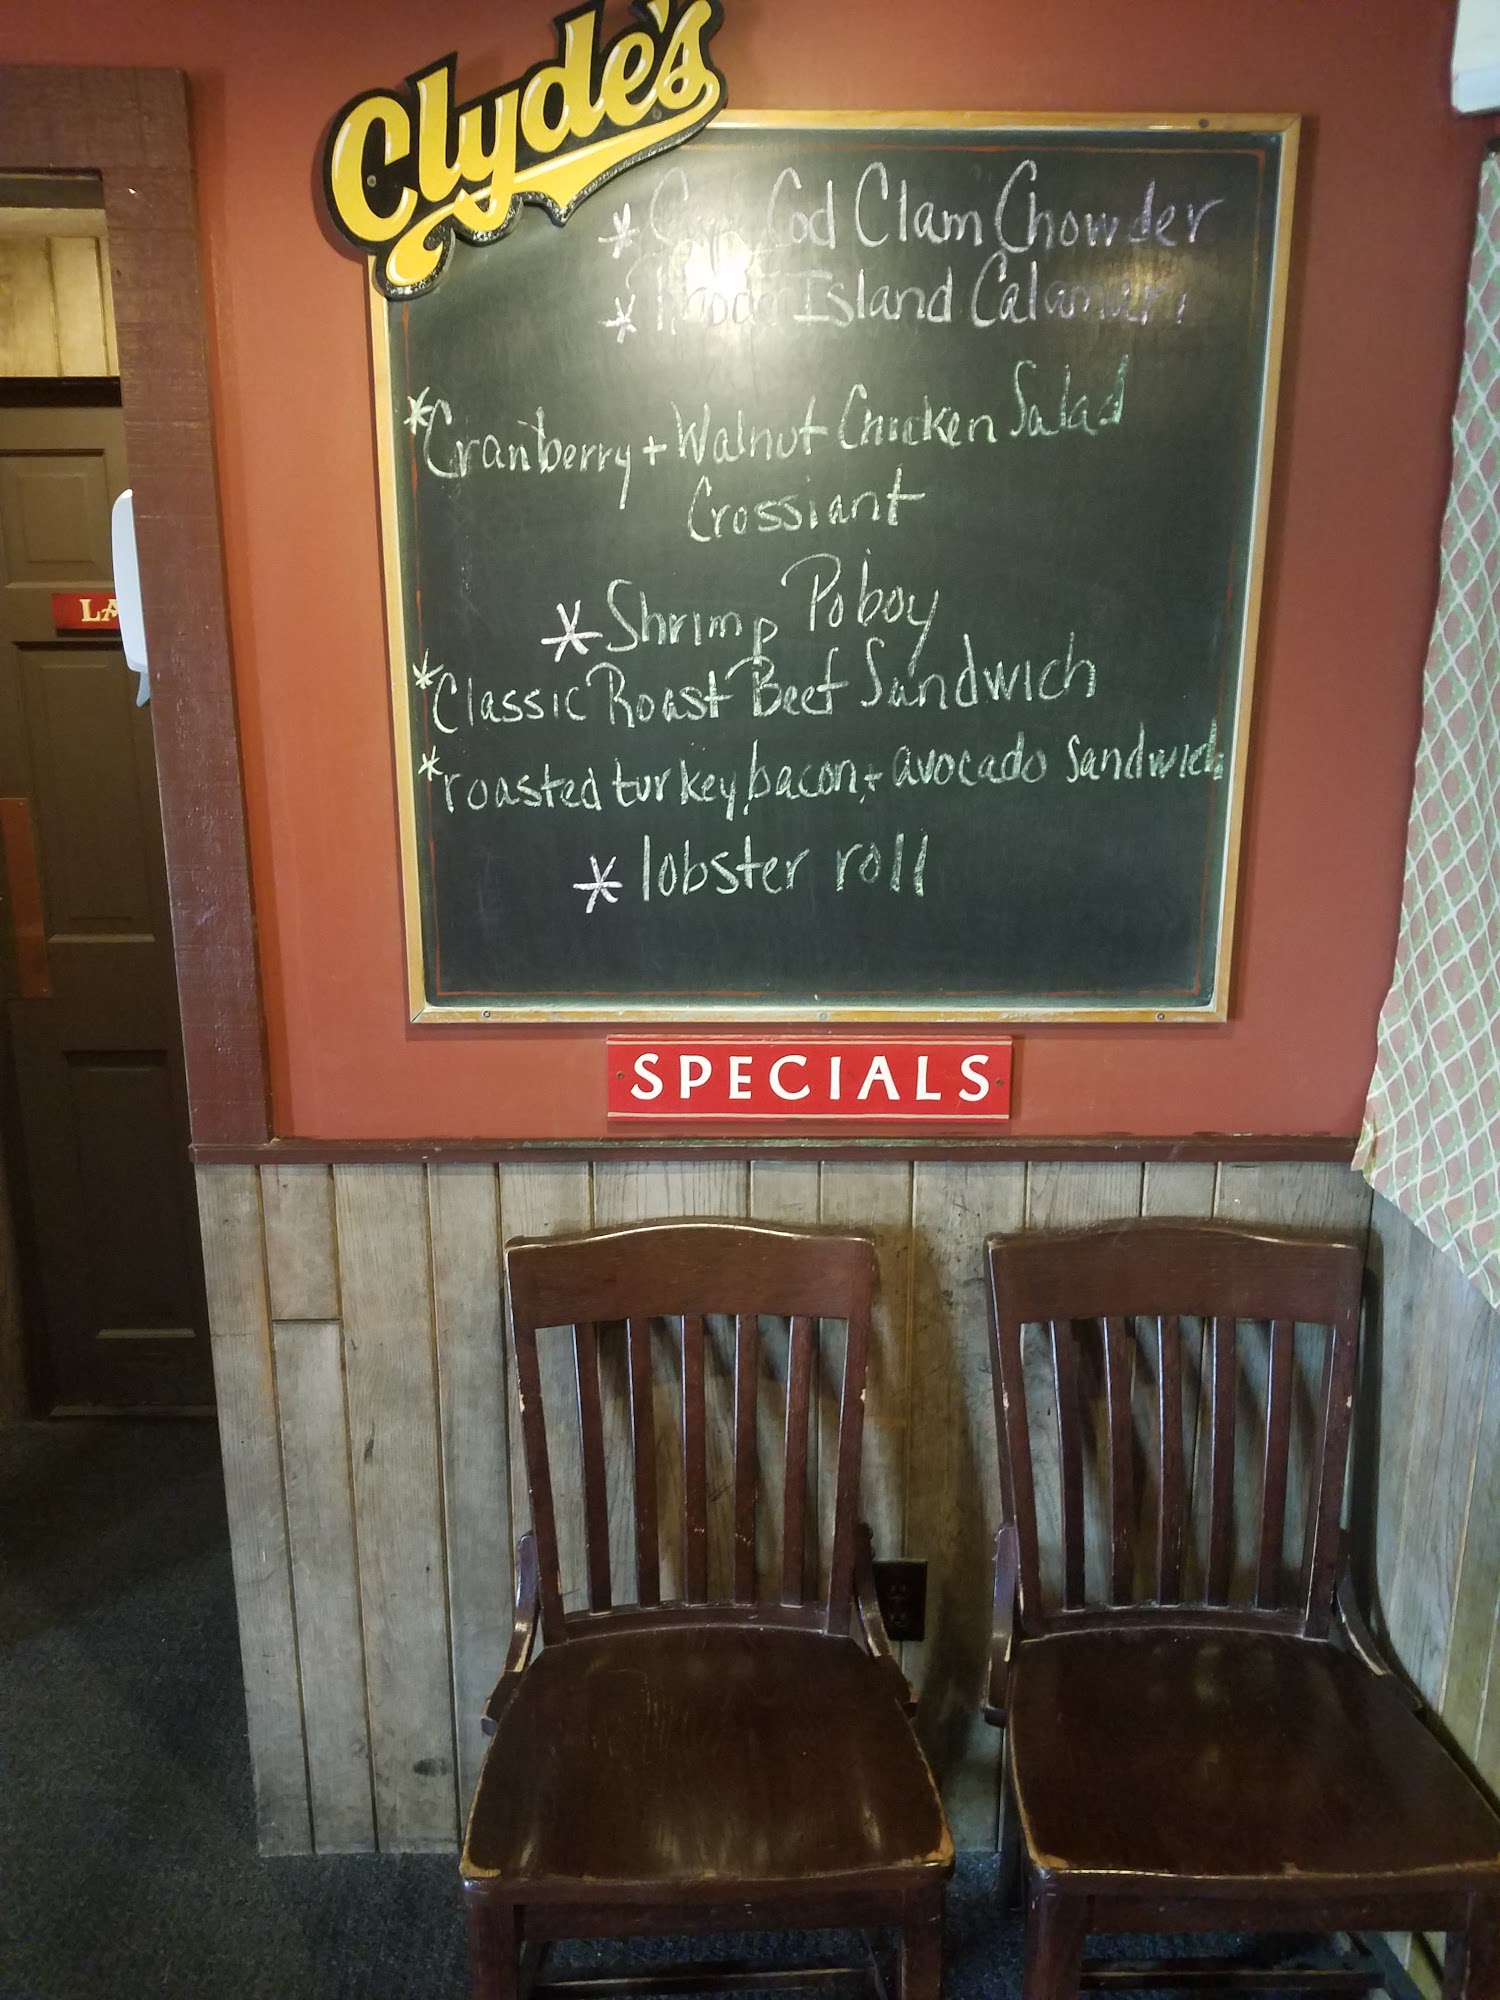 Clyde's
* Cape Cod Clam Chowder
* Rhode Island Calamari
* Cranberry + Walnut Chicken Salad
Crossiant
* Shrimp Poboy
* Classic Roast Beef Sandwich
* roasted turkey, bacon, + avocado sandwich
* lobster roll
SPECIALS
LA